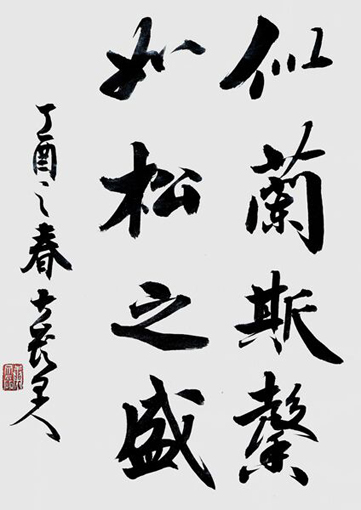 似蘭斯馨
如松之盛
丁酉之春